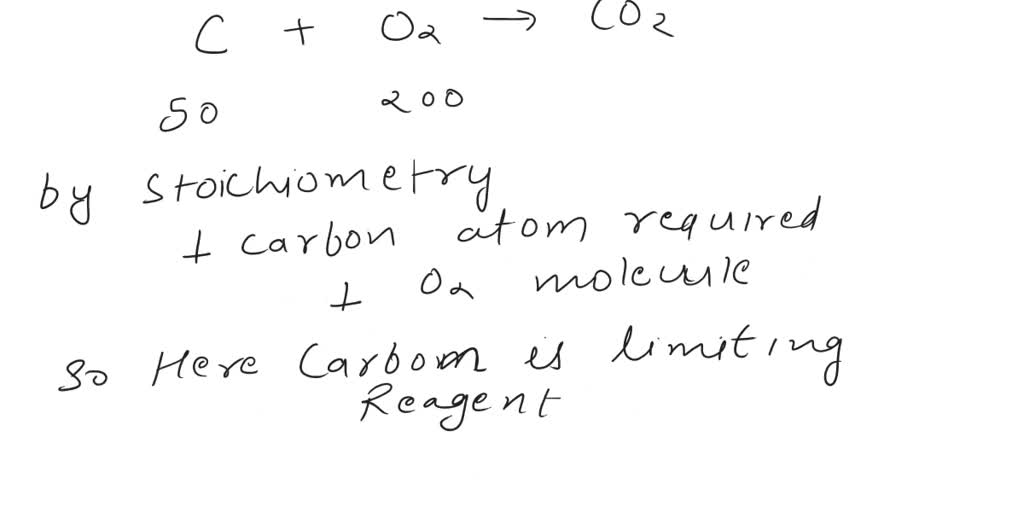 C + O2 → CO2
50 200
by stoichiometry
1 carbon atom required
1 O2 molecule
So Here Carbon is limiting
Reagent